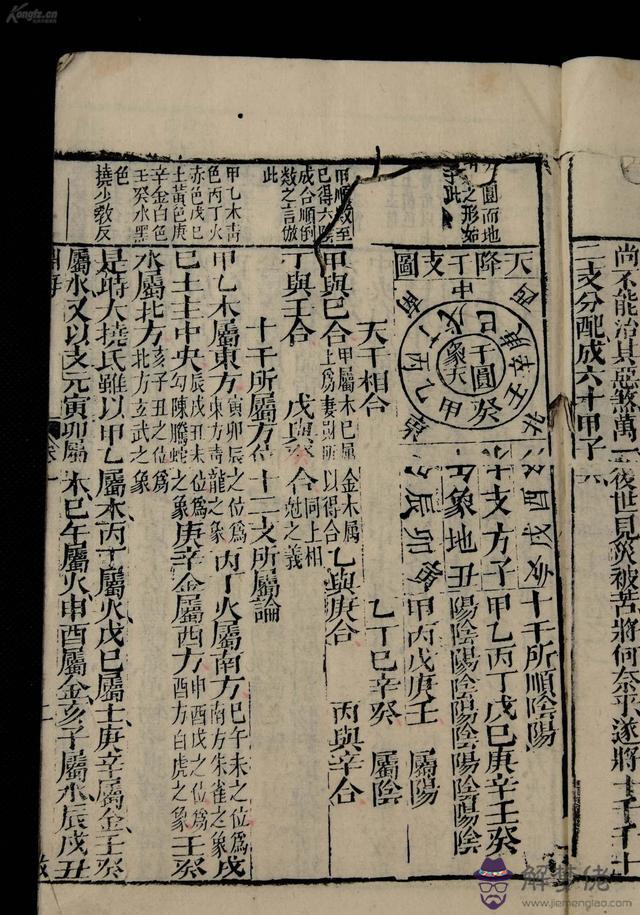 尚不能治其惡煞萬一後世見災被苦將何奈乎遂將十干十
二支分配成六十甲子
天降干支圖
中
干圓
象天
戊己庚辛壬癸甲乙丙丁
西
南
北
東
十干所順陰陽
戌亥
十支方子甲乙丙丁戊己庚辛壬癸
象地丑陽陰陽陰陽陰陽陰陽陰
辰卯寅甲丙戊庚壬屬陽
乙丁巳辛癸屬陰
天干相合
甲與巳合甲屬木巳屬土爲妻財所以得合乙與庚合金木屬丙與辛合
丁與壬合戊與癸合同上相尅之義
十干所屬方位十二支所屬論
甲乙木屬東方寅卯辰之位爲東方青龍之象丙丁火屬南方巳午未之位爲南方朱雀之象戊
巳土主中央辰戌丑未位爲勾陳螣蛇之象庚辛金屬西方申酉戌之位爲西方白虎之象壬癸
水屬北方亥子丑之位爲北方玄武之象
是時大撓氏雖以甲乙屬木丙丁屬火戊巳屬土庚辛屬金壬癸
屬水又以支元寅卯屬木巳午屬火申酉屬金亥子屬水辰戌丑
圓而地
之形如
此
甲順數至
巳得六陰
成合順倒
數之言倣
此
甲乙木青
色丙丁火
赤色戊巳
土黃色庚
辛金白色
壬癸水黑
色
撓少教反
淵海
卷一
二
Kongfz.cn
解夢佬
www.jiemenglao.com